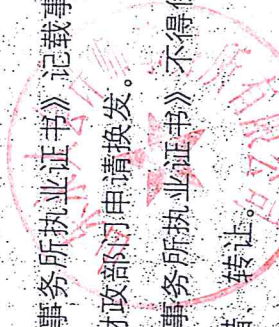 事务所执业证书》记载事
财政部门申请换发。
事务所执业证书》不得
借、转让。